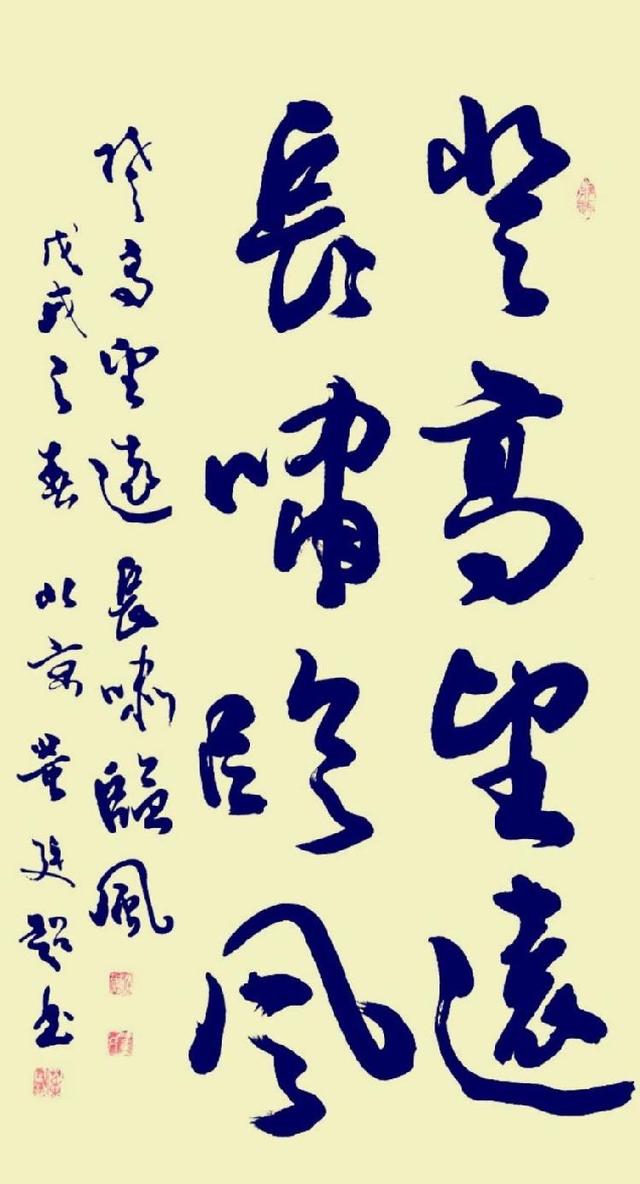 登高望遠
長嘯臨風
登高望遠 長嘯臨風
戊戌之春 北京 超书